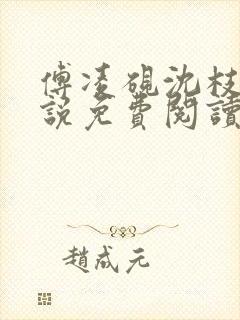 傅凌砚沈枝
說免費閱讀
趙成元